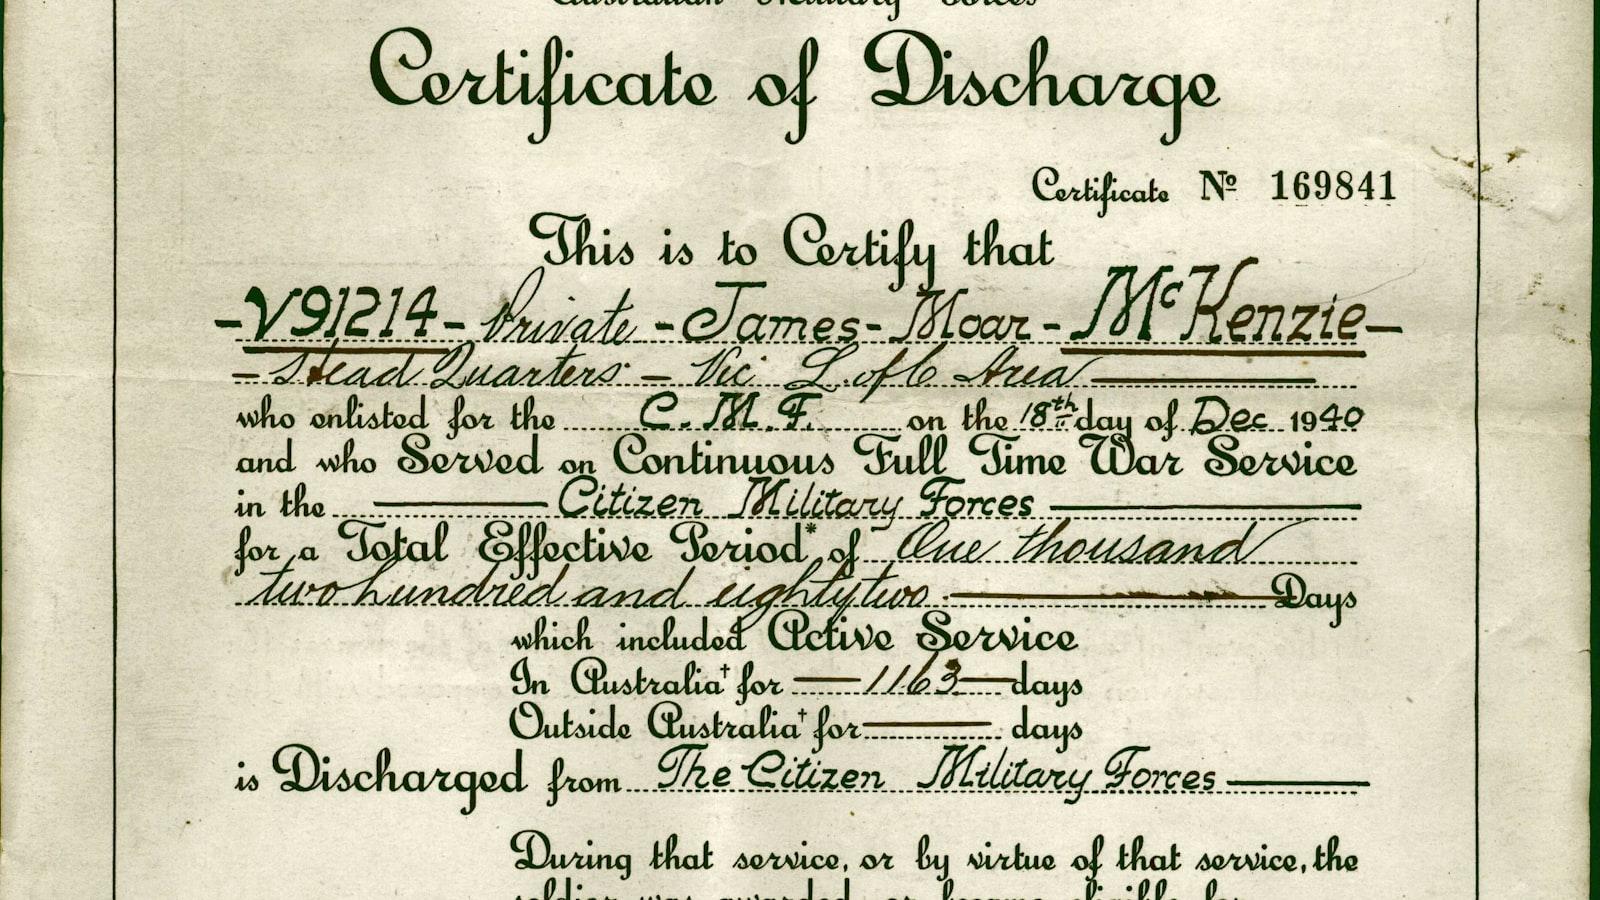 Australian Military Forces
Certificate of Discharge
Certificate No 169841
This is to Certify that
- V91214 - Private - James - Moar - McKenzie -
- Head Quarters - Vic L. of C Area
who enlisted for the C. M. F. on the 18th day of Dec 1940
and who Served on Continuous Full Time War Service
in the Citizen Military Forces
for a Total Effective Period* of One thousand
two hundred and eighty two Days
which included Active Service
In Australia† for 1163 days
Outside Australia† for days
is Discharged from The Citizen Military Forces
During that service, or by virtue of that service, the
soldier was awarded, or became eligible for